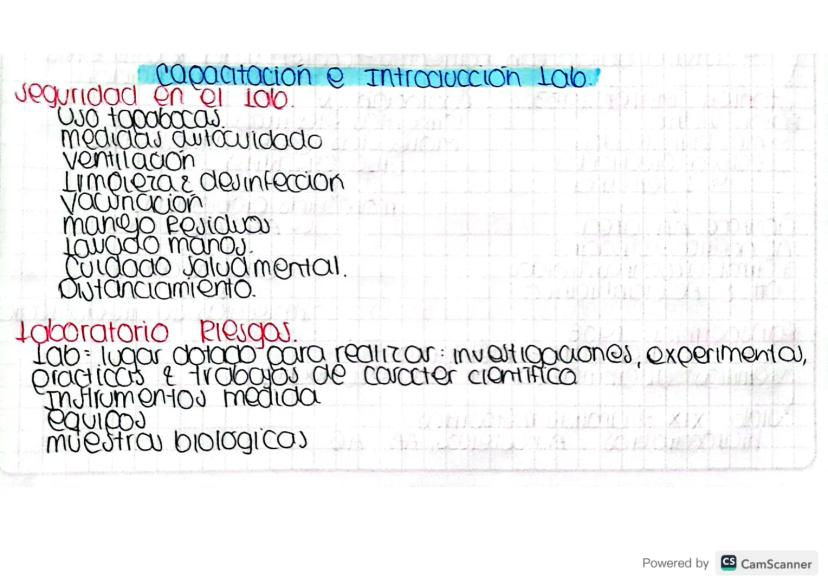 Capacitación e Introducción Lab.
Seguridad en el Lab.
Uso tapabocas.
medidas autocuidado
ventilación
Limpieza & desinfección
Vacunación
manejo Residuos
Lavado manos.
Cuidado Salud mental.
Distanciamiento.
Laboratorio Riesgos.
Lab = lugar dotado para realizar: investigaciones, experimentos,
practicas & trabajos de caracter cientifico
Instrumentos medida
equipos
muestras biologicas
Powered by CS CamScanner